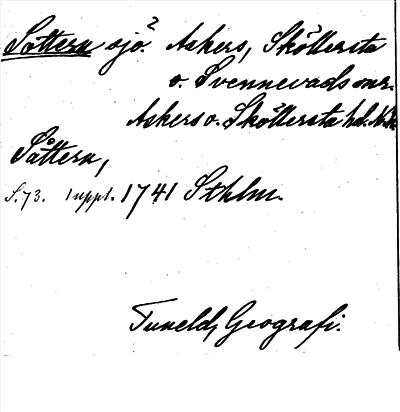 Sottern sjö.² Askers, Sköllersta
o. Svennevads snr.
Askers o. Sköllersta hd.
Såttern,
S. 73. 1 uppl. 1741 Sthlm.
Tuneld, Geografi.